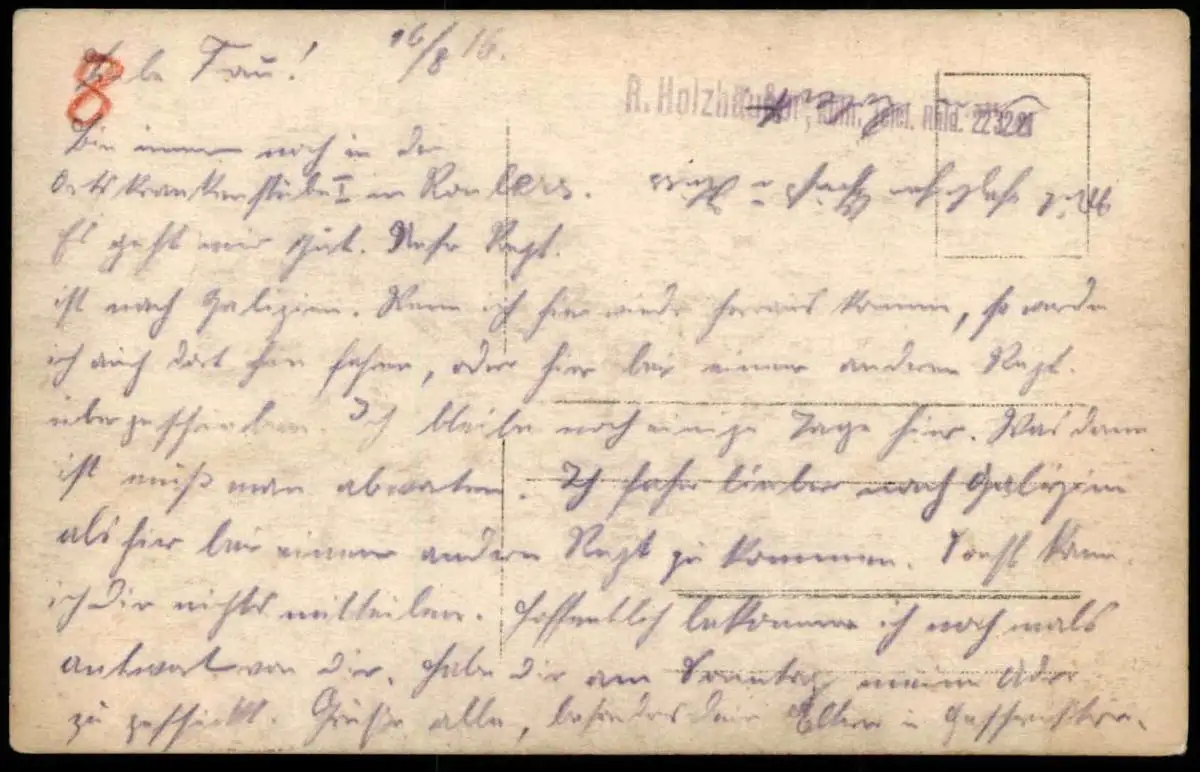 16/8 16.
8
R. Holzhäußer,
Bin immer noch in der
Ortskrankenstube I in Roulers.
Es geht mir gut. Unser Regt.
ist nach Galizien. Wenn ich hier wieder heraus komme, so werde
ich auch dort hin fahren, oder hier bei einem anderen Regt.
überschrieben Ich bleibe noch einige Tage hier. Was dann
ist muß man abwarten. Ich fahre lieber nach Galizien
als hier bei einem andern Regt zu kommen. Sonst kann
ich Dir nichts mitteilen. Hoffentlich bekomme ich nochmals
Antwort von Dir. Habe Dir am Sonntag meine
zu geschickt. Grüße alle, besonders Deine Eltern u Geschwister.